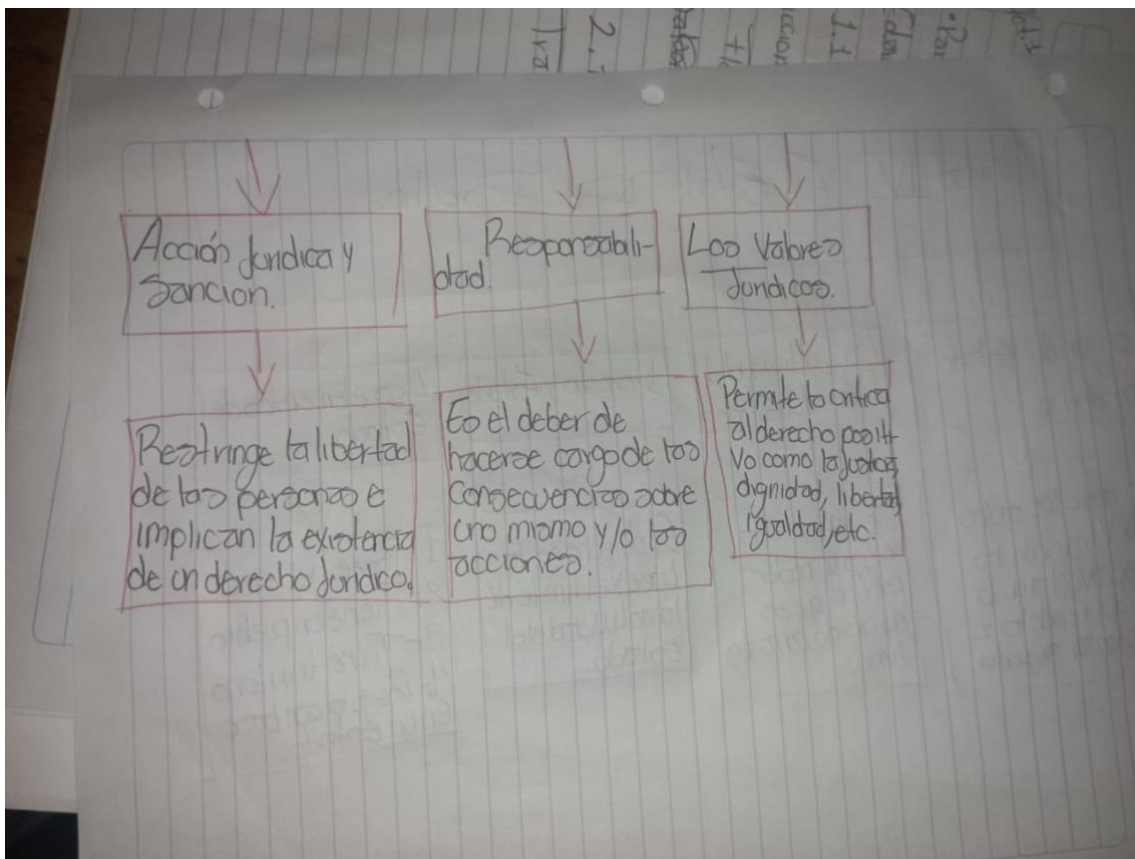 Acción Jurídica y
Sanción.
Responsabili-
dad.
Los Valores
Jurídicos.
Restringe la libertad
de las personas e
implican la existencia
de un derecho Jurídico.
Es el deber de
hacerse cargo de las
consecuencias sobre
uno mismo y/o las
acciones.
Permite la critica
al derecho positi-
vo como la justicia,
dignidad, libertad,
igualdad, etc.
2.1
1.1